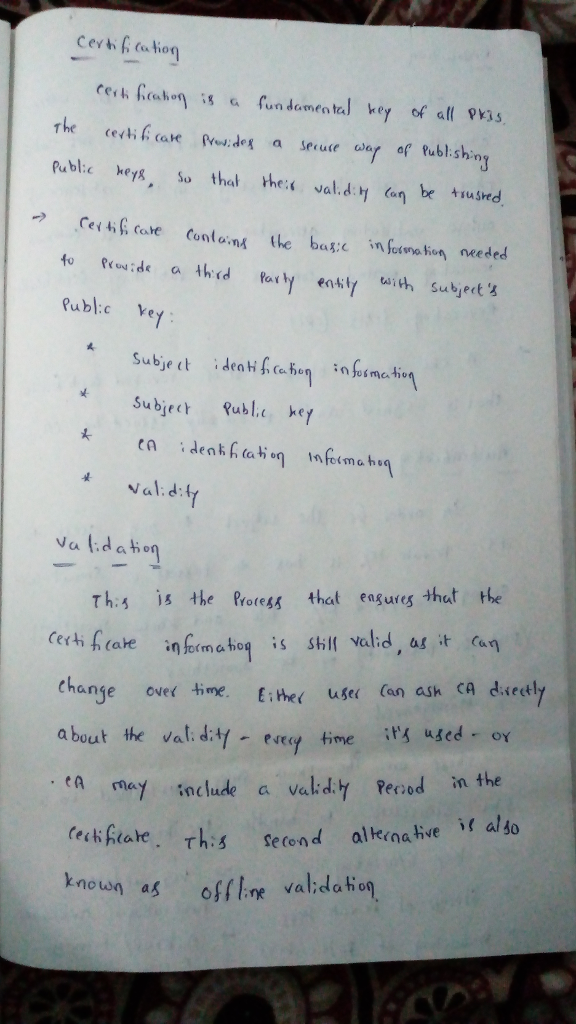 Certification
Certification is a fundamental key of all PKIs.
The certificate Provides a secure way of Publishing
Public keys, so that their validity can be trusted.
→ Certificate contains the basic information needed
to Provide a third Party entity with subject's
Public key:
* Subject identification information
* Subject Public key
* CA identification Information
* Validity
Validation
This is the Process that ensures that the
Certificate information is still valid, as it can
change over time. Either user can ask CA directly
about the validity - every time it's used - or
CA may include a validity Period in the
Certificate. This second alternative is also
known as offline validation.